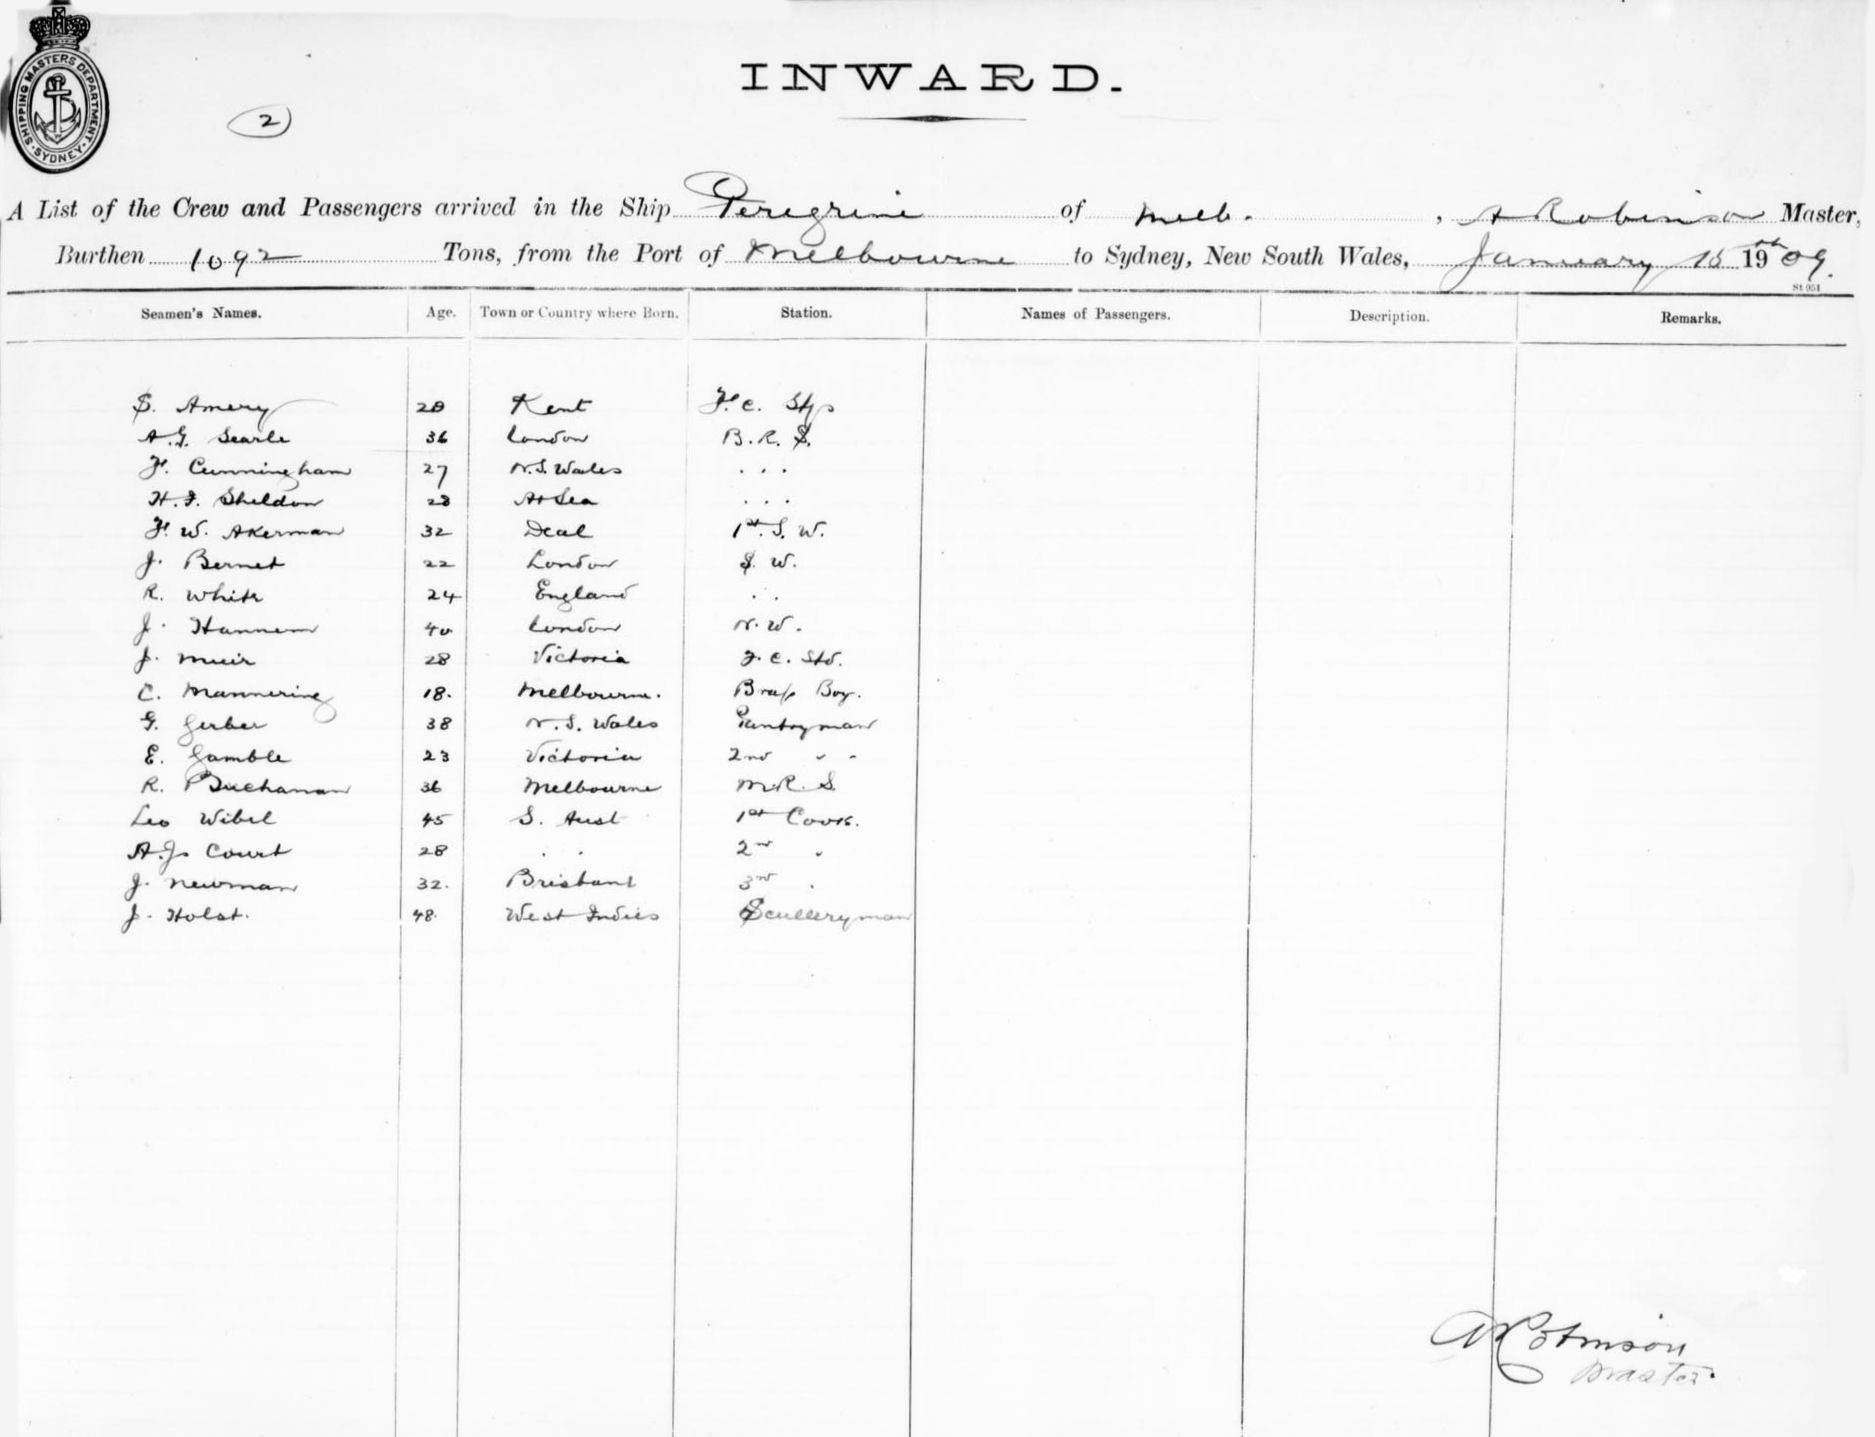 SHIPPING MASTERS DEPARTMENT · SYDNEY ·
INWARD.
2
A List of the Crew and Passengers arrived in the Ship Peregrine of Melb. , A Robinson Master,
Burthen 1092 Tons, from the Port of Melbourne to Sydney, New South Wales, January 15th 1909.
St 951
Seamen's Names. Age. Town or Country where Born. Station. Names of Passengers. Description. Remarks.
S. Amery 28 Kent F.C.
A.G. Searle 36 London B.R.S.
F. Cunningham 27 N.S. Wales . . .
H.F. Sheldon 28 At Sea . . .
F. W. Akerman 32 Deal 1st. S. W.
J. Bernet 22 London S. W.
R. White 24 England . .
J. Hannem 40 London N. W.
J. Muir 28 Victoria F.C. Std.
C. Mannering 18. Melbourne. Brass Boy.
G. Gerber 38 N. S. Wales Pantryman
E. Gamble 23 Victoria 2nd " "
R. Buchanan 36 Melbourne M.R. S.
Leo Wibel 45 S. Aust 1st Cook.
A.J. Court 28 . . 2nd "
J. Newman 32. Brisbane 3rd .
J. Holst. 48. West Indies Sculleryman
A Robinson
Master.